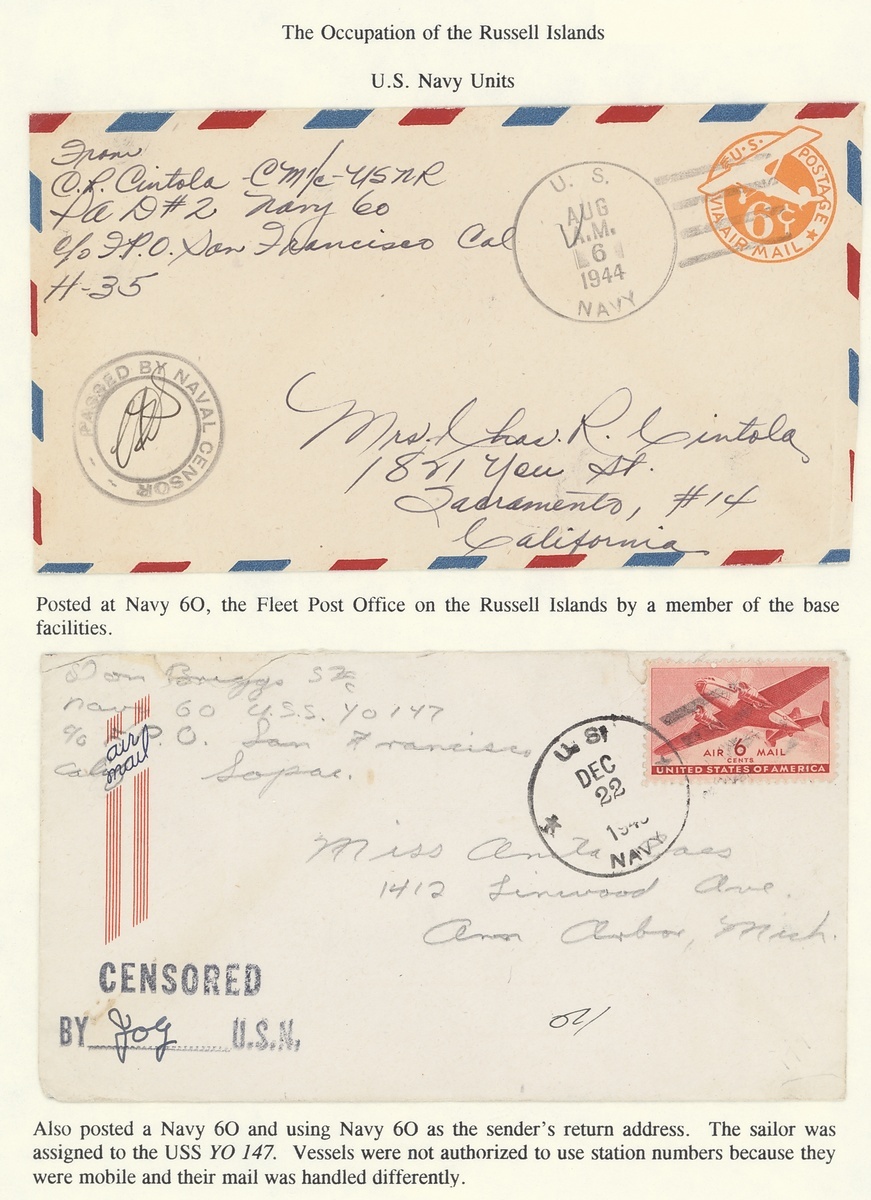 The Occupation of the Russell Islands
U.S. Navy Units
From
C.R. Cintola - CM1/c - USNR
Pa D#2 Navy 60
c/o F.P.O. San Francisco Cal
H-35
U. S.
AUG
6
A.M.
1944
NAVY
U.S. POSTAGE
6¢
VIA AIR MAIL
PASSED BY NAVAL CENSOR
Mrs. Chas. R. Cintola
1821 Yew St.
Sacramento, #14
California
Posted at Navy 6O, the Fleet Post Office on the Russell Islands by a member of the base
facilities.
Don Briggs S2c
Navy 60 U.S.S. YO147
c/o F.P.O. San Francisco
Calif Sopac.
air
mail
U. S.
DEC
22
NAVY
AIR 6 MAIL
CENTS
UNITED STATES OF AMERICA
Miss Anita
1412 Linwood Ave.
Ann Arbor, Mich.
CENSORED
BY U.S.N.
Also posted a Navy 6O and using Navy 6O as the sender's return address. The sailor was
assigned to the USS YO 147. Vessels were not authorized to use station numbers because they
were mobile and their mail was handled differently.